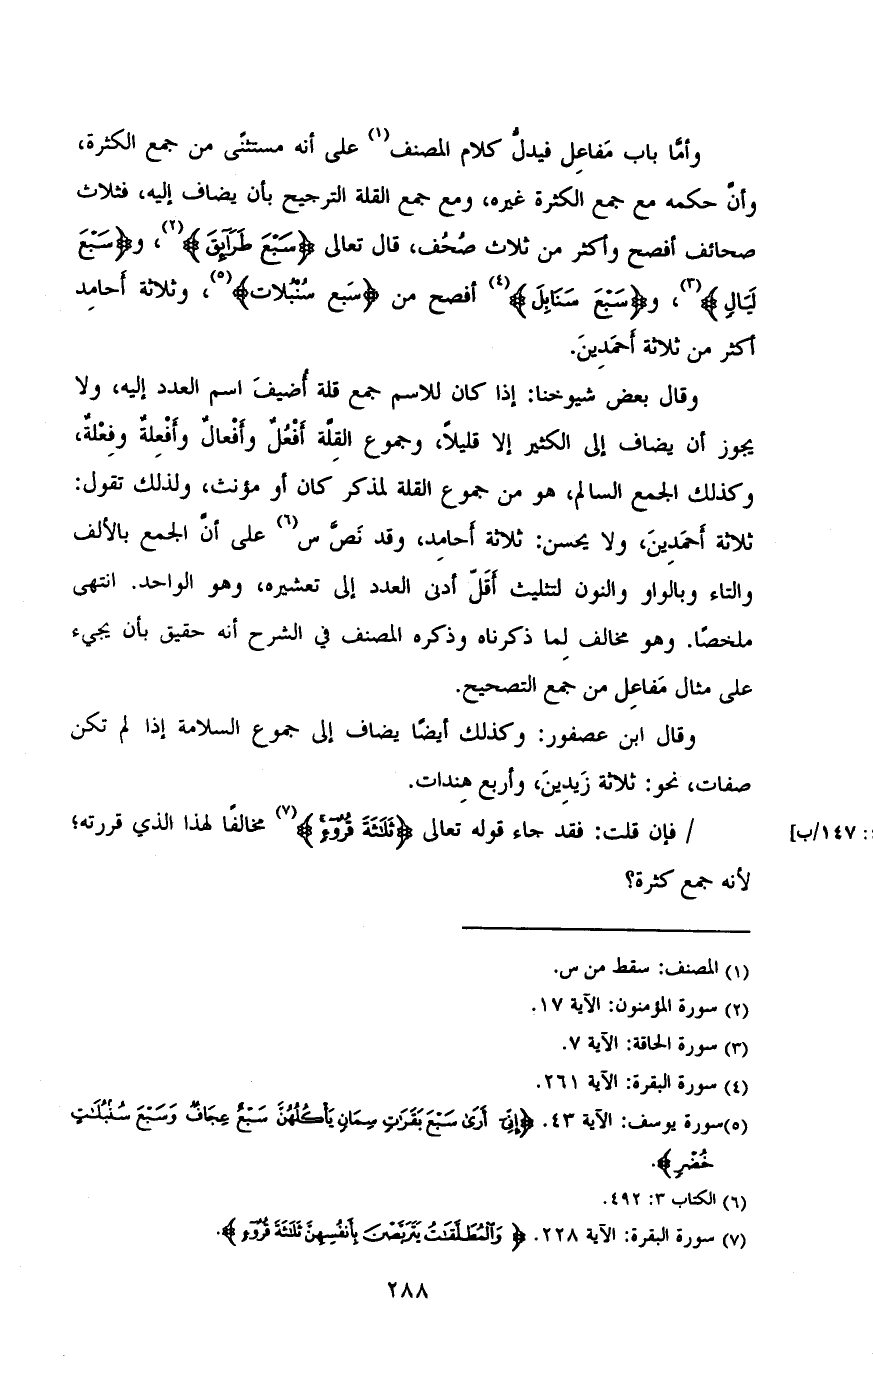 وأمَّا باب مَفاعِل فيدلُّ كلام المصنف(١) على أنه مستثنًى من جمع الكثرة،
وأنَّ حكمه مع جمع الكثرة غيره، ومع جمع القلة الترجيح بأن يضاف إليه، فثلاث
صحائف أفصح وأكثر من ثلاث صُحُف، قال تعالى ﴿سَبْعَ طَرَآئِقَ﴾(٢)، و﴿سَبْعَ
لَيَالٍ﴾(٣)، و﴿سَبْعَ سَنَابِلَ﴾(٤) أفصح من ﴿سَبع سُنْبُلات﴾(٥)، وثلاثة أَحامِد
أكثر من ثلاثة أَحمَدِينَ.
وقال بعض شيوخنا: إذا كان للاسم جمع قلة أُضيفَ اسم العدد إليه، ولا
يجوز أن يضاف إلى الكثير إلا قليلاً، وجموع القِلَّة أَفْعُلٌ وأَفْعالٌ وأَفْعِلةٌ وفِعْلةٌ،
وكذلك الجمع السالم، هو من جموع القلة لمذكر كان أو مؤنث، ولذلك تقول:
ثلاثة أَحمَدِينَ، ولا يحسن: ثلاثة أَحامِد، وقد نَصَّ س(٦) على أنَّ الجمع بالألف
والتاء وبالواو والنون لتثليث أَقَلّ أدنى العدد إلى تعشيره، وهو الواحد. انتهى
ملخصًا. وهو مخالف لِما ذكرناه وذكره المصنف في الشرح أنه حقيق بأن يجيء
على مثال مَفاعِل من جمع التصحيح.
وقال ابن عصفور: وكذلك أيضًا يضاف إلى جموع السلامة إذا لم تكن
صفات، نحو: ثلاثة زَيدِينَ، وأربع هِندات.
/ فإن قلت: فقد جاء قوله تعالى ﴿ثَلَٰثَةَ قُرُوٓءٍ﴾(٧) مخالفًا لهذا الذي قررته؛
: ١٤٧/ب]
لأنه جمع كثرة؟
(١) المصنف: سقط من س.
(٢) سورة المؤمنون: الآية ١٧.
(٣) سورة الحاقة: الآية ٧.
(٤) سورة البقرة: الآية ٢٦١.
(٥)سورة يوسف: الآية ٤٣. ﴿إِنِّىٓ أَرَىٰ سَبْعَ بَقَرَٰتٍ سِمَانٍ يَأْكُلُهُنَّ سَبْعٌ عِجَافٌ وَسَبْعَ سُنۢبُلَٰتٍ
خُضْرٍ﴾.
(٦) الكتاب ٣: ٤٩٢.
(٧) سورة البقرة: الآية ٢٢٨. ﴿وَٱلْمُطَلَّقَٰتُ يَتَرَبَّصْنَ بِأَنفُسِهِنَّ ثَلَٰثَةَ قُرُوٓءٍ﴾.
٢٨٨